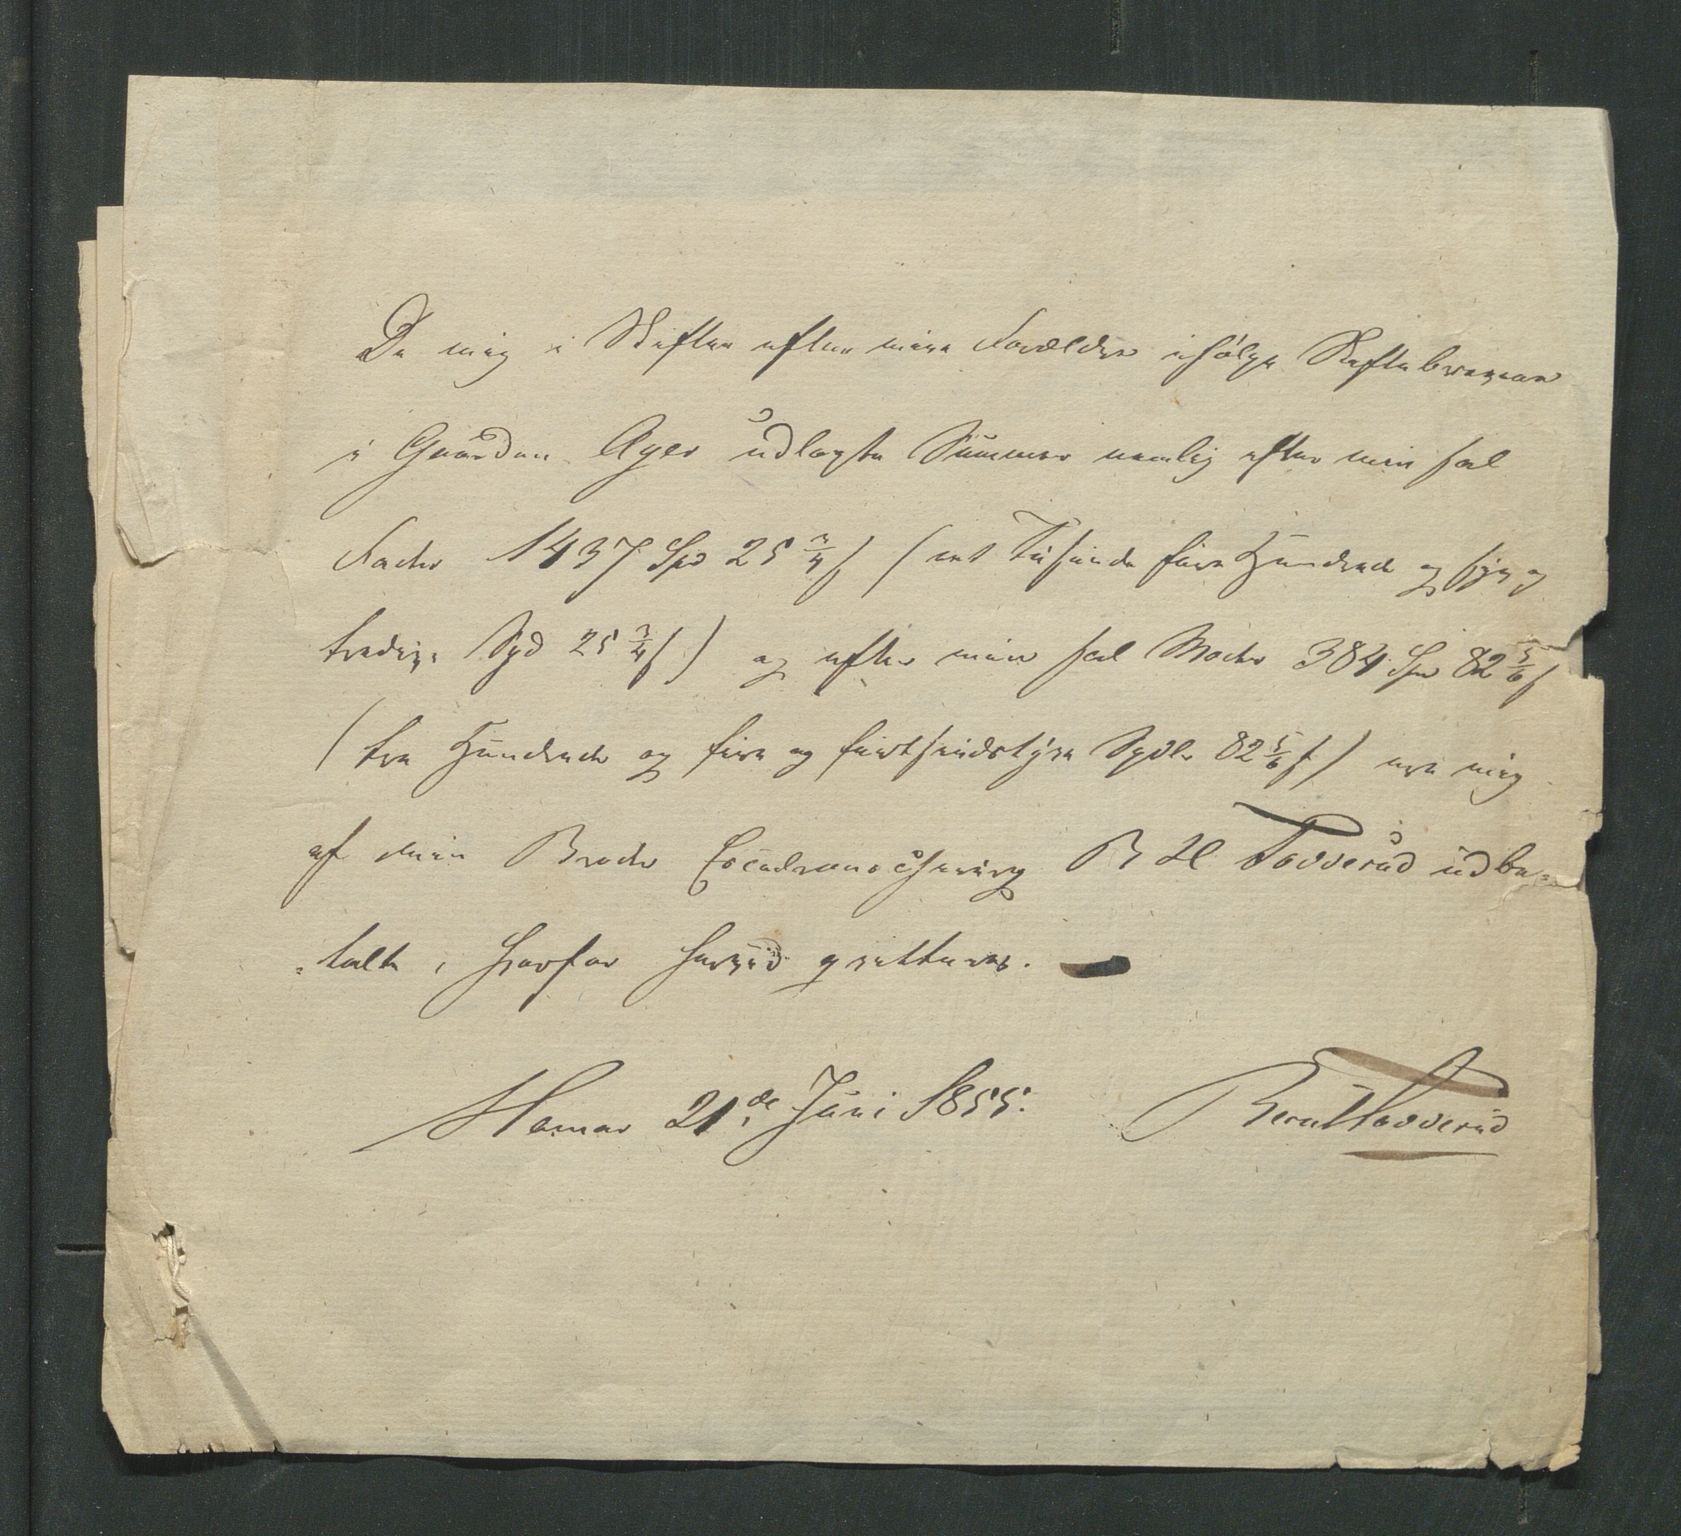 De mig i Skiftet efter mine Forældre ifølge Skiftebrevene
i Gaarden Ager udlagte Summer nemlig efter min sal
Fader 1437 Spd 25 3/4 s (et Tusinde fire Hundrede og syv og
tredive Spd 25 3/4 s) og efter min sal Moder 384 Spd 82 5/6 s
(tre Hundrede og fire og fiirsindstyve Spdlr 82 5/6 s) ere mig
af min Broder B H Tovverud udbe=
=talte, hvorfor herved qvitteres.
Hamar 21de Juni 1855. Bernt Tovverud